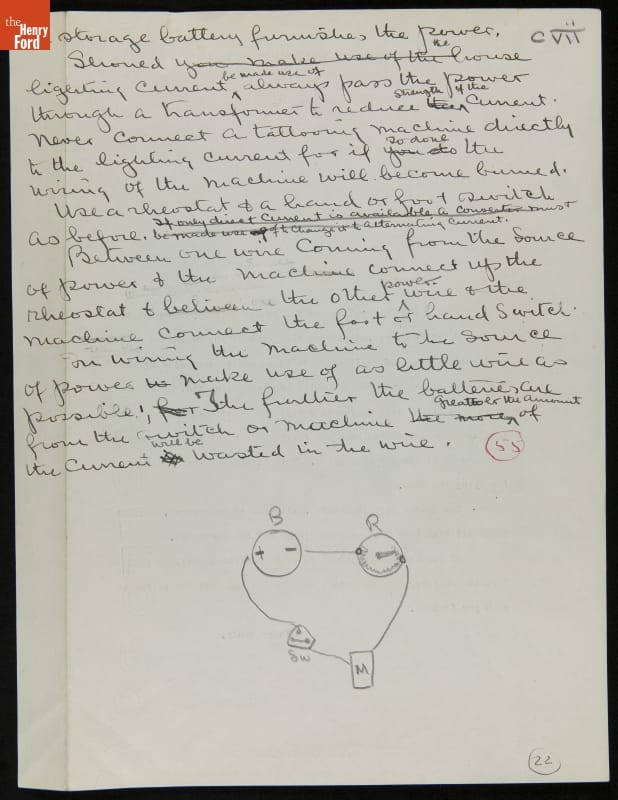 the
Henry
Ford
storage battery furnishes the power.
C VII
Should you make use of the the house
lighting current be made use of always pass the power
through a transformer to reduce the strength of the current.
Never connect a tattooing machine directly
to the lighting current for if you do so done the
wiring of the machine will become burned.
Use a rheostat & a hand or foot switch
as before. If only direct current is available a converter must
be made use of to change it to alternating current.
Between one wire coming from the source
of power & the machine connect up the
rheostat & between the other power wire & the
machine connect the foot or hand switch.
In wiring the machine to the source
of power make use of as little wire as
possible, for The further the batteries are
from the switch or machine the more greater the amount of
the current is will be wasted in the wire.
55
B
R
+ −
Sw
M
22